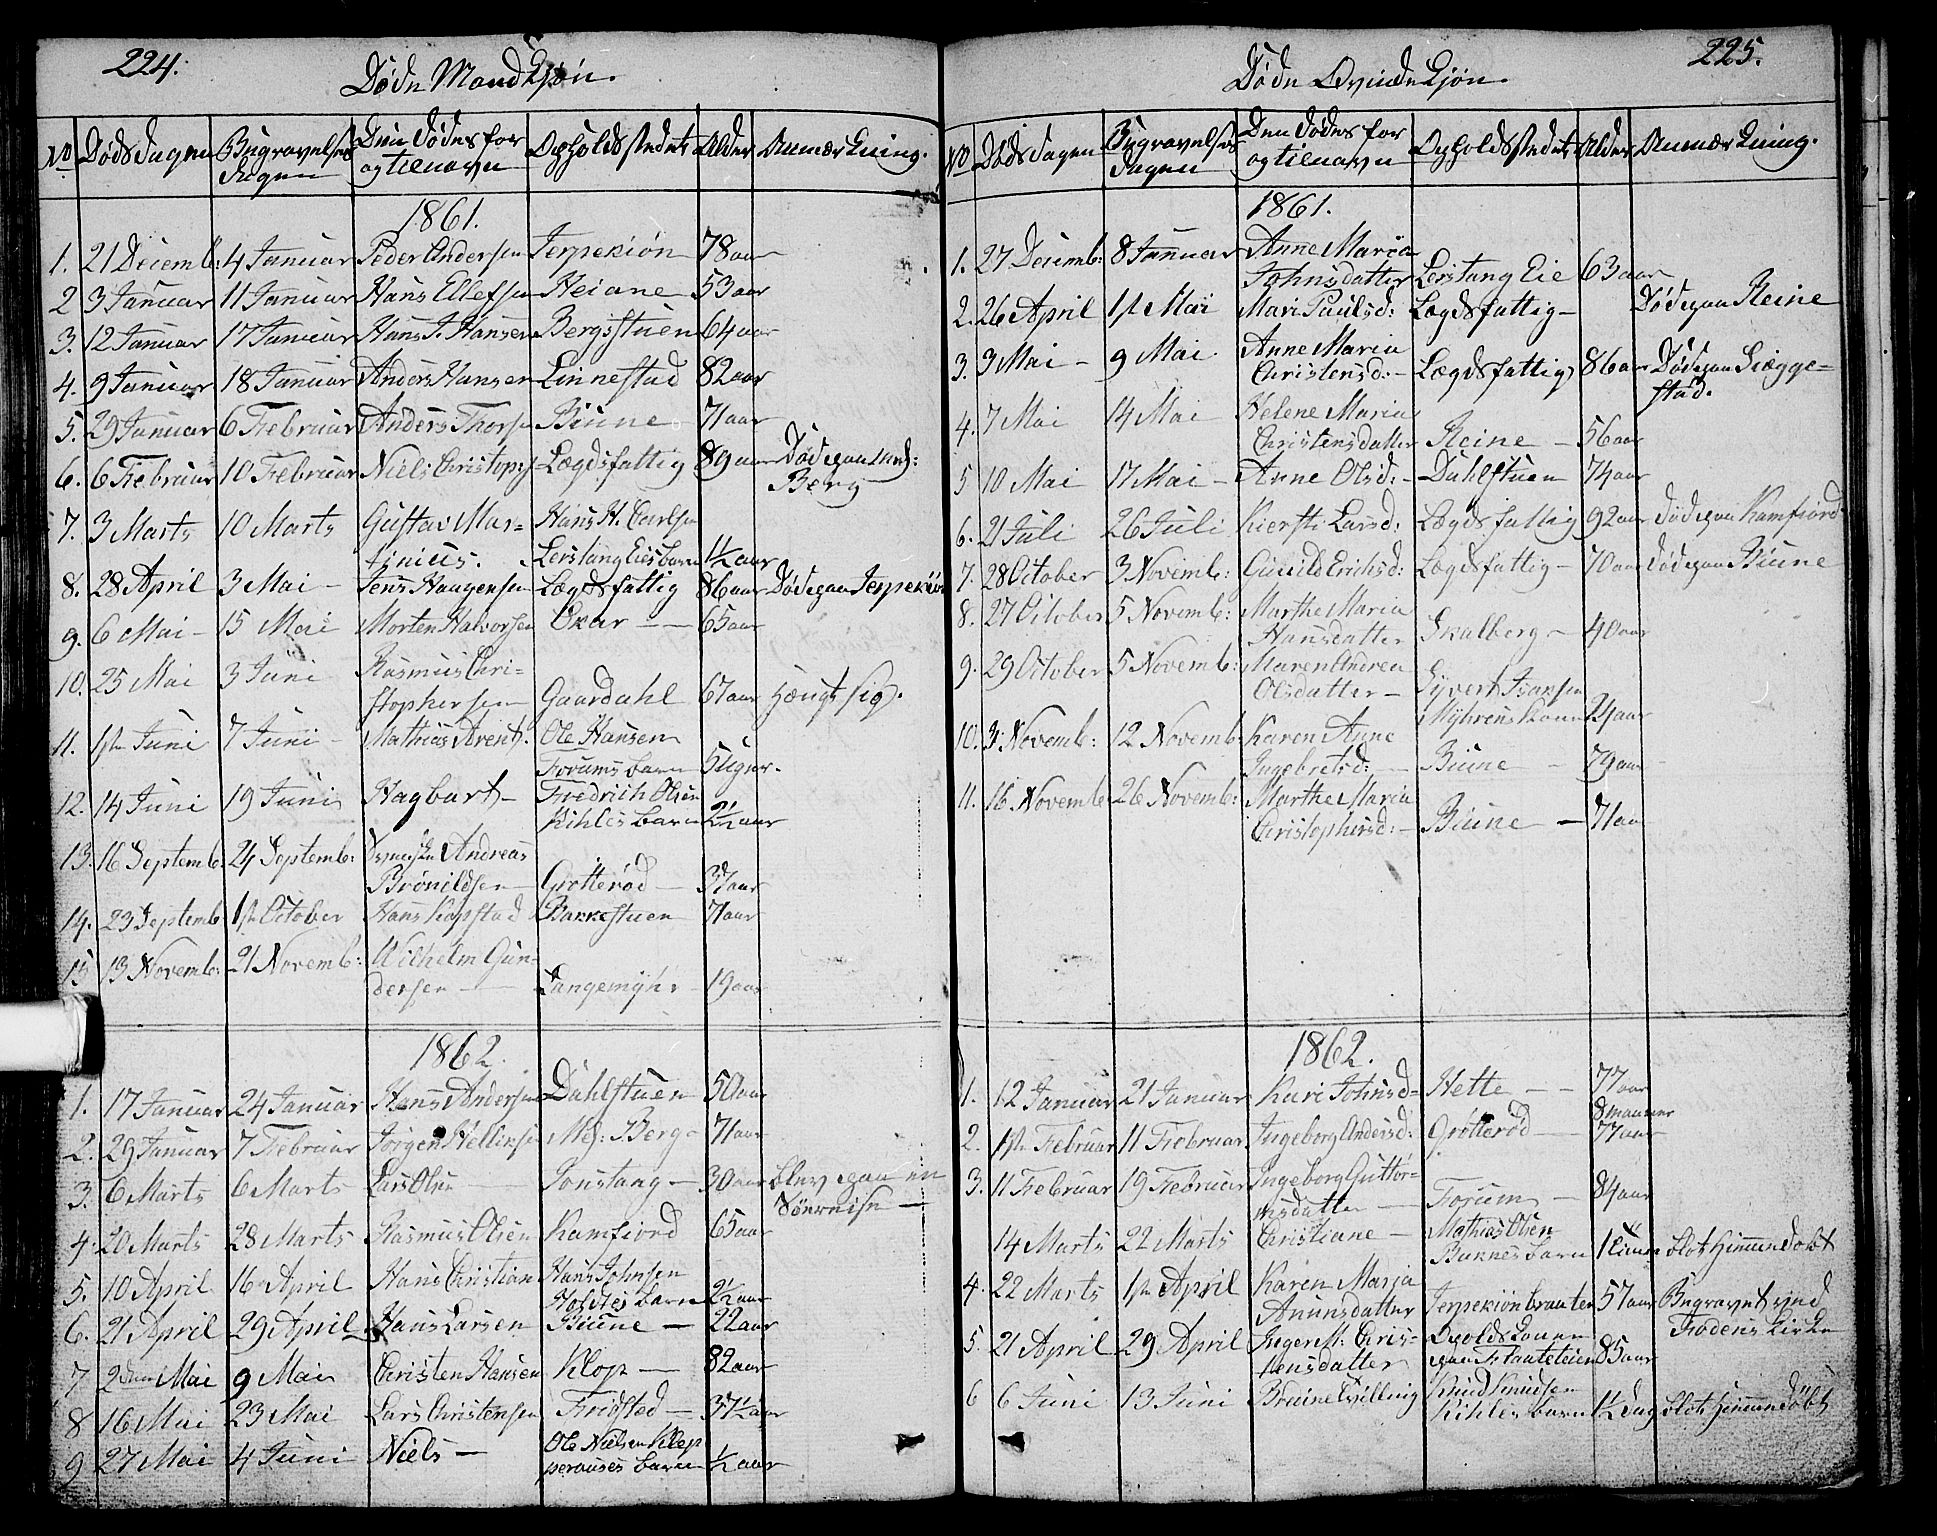 224.
Døde Mandkjøn.
No Dødsdagen Begravelses Dagen Den Dødes for og tilnavn Opholdsstedet Alder Anmærkning.
1861.
1. 21 Decemb: 4 Januar Peder Andersen Jerpekiøn 78 aar
2 3 Januar 11 Januar Hans Ellefsen Heiane 53 aar
3. 12 Januar 17 Januar Hans J. Hansen Bergstuen 64 aar
4. 9 Januar 18 Januar Anders Hansen Linnestad 82 aar
5. 29 Januar 6 Februar Anders Thorsen Biune 71 aar
6. 6 Februar 10 Februar Niels Christophs Lægdsfattig 89 aar Døde paa
Berg
7. 3 Marts 10 Marts Gustav Mar- Hans H. Carlsen
tinius. Lerstang Eies barn 1½ aar
8. 28 April 3 Mai - Jens Haagensen Lægdsfattig 86 aar Døde paa Jerpekiøn
9. 6 Mai - 15 Mai Morten Halvorsen Ekar - - 65 aar
10. 25 Mai 3 Juni Rasmus Chri-
stophersen Gaardahl 67 aar Hængt sig.
11. 1ste Juni 7 Juni - Mathias Arent. Ole Hansen
Forums barn 5 Uger.
12. 14 Juni 19 Juni Hagbart - Fredrich Olsen
Kihles barn 2½ aar
13. 16 Septemb 24 Septemb: Andreas
Brønildsen - Grötteröd - 37 aar
14. 23 Septemb 1ste October Hans Kopstad Bakkestuen 71 aar
15 13 Novemb: 21 Novemb: Wilhelm Gun-
dersen - Langemyhr - 19 aar
1862.
1. 17 Januar 24 Januar Hans Andersen Dahlstuen 50 aar
2. 29 Januar 7 Februar Jørgen Hellesen Mej: Berg - 71 aar
3. 6 Marts 6 Marts Lars Olsen Tonstang - 30 aar blev paa en
Sønreise -
4. 20 Marts 28 Marts Rasmus Olsen Kamfiord 65 aar
5. 10 April 16 April Hans Christian Hans Johnsen
Holstes barn 2½ aar
6. 21 April 29 April Hans Larsen Biune - 22 aar
7 2den Mai 9 Mai Christen Hansen Klop - 82 aar
8 16 Mai 23 Mai Lars Christensen Fredstad - 37½ aar
9 27 Mai 4 Juni Niels - Ole Nielsen Klop
barn ½ aar
225.
Døde Qvindekjøn.
No Dødsdagen Begravelses Dagen Den Dødes for og tilnavn Opholdsstedet Alder Anmærkning.
1861.
1. 27 Decemb: 8 Januar Anne Maria
Johnsdatter Lerstang Eie 63 aar
2. 26 April 1ste Mai Mari Paulsd: Lægdsfattig - Døde paa Reine
3. 3 Mai - 9 Mai Anne Maria
Christensd: - Lægdsfattig 86 aar Døde paa Giægge-
stad.
4. 7 Mai 14 Mai Helene Maria
Christensdatter Reine - 56 aar
5 10 Mai 17 Mai - Anne Olsd: - Dahlstuen 74 aar
6. 21 Juli 26 Juli Kiersti Larsd: Lægdsfattig 92 aar Døde paa Kamfiord
7. 28 October 3 Novemb: Gunild Erichsd: Lægdsfattig - 70 aar Døde paa Biune
8. 27 October 5 Novemb: Marthe Maria
Hansdatter Skalberg - 40 aar
9. 29 October 5 Novemb: Maren Andrea Syvert Isaksen
Olsdatter - Myhrens kone 24 aar
10. 3 Novemb: 12 Novemb Karen Anne
Ingebretsd: - Biune - 79 aar
11. 16 Novemb 26 Novemb: Marthe Maria
Christophersd: - Biune - 71 aar
1862.
1. 12 Januar 21 Januar Kari Johnsd - Hette - - 77 aar
8 maaneder
2. 1ste Februar 11 Februar Ingeborg Andersd: Grötteröd - 77 aar
3. 11 Februar 19 Februar Ingeborg Guttor-
msdatter - Forum - 84 aar
14 Marts 22 Marts Christiane - Mathias Olsen
Bakkes barn 1 Time blot Hjemmedøbt
4. 22 Marts 1ste April Karen Maria
Anunsdatter Jerpekiønbraaten 57 aar Begravet ved
5. 21 April 29 April Ingereth: Chris- Opholdskone Fiodens Kirke
tensdatter paa Flaateteien 85 aar
6 6 Juni 13 Juni Bruine Tvilling Knud Knudsen
Kihles barn 1½ Dag blot Hjemmedøbt